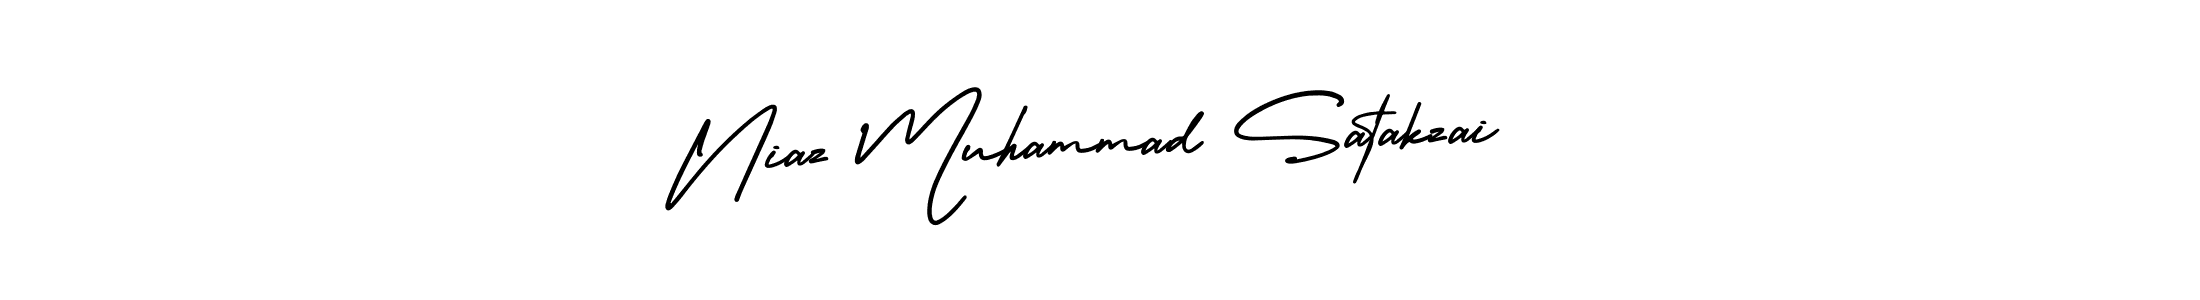 Niaz Muhammad Satakzai